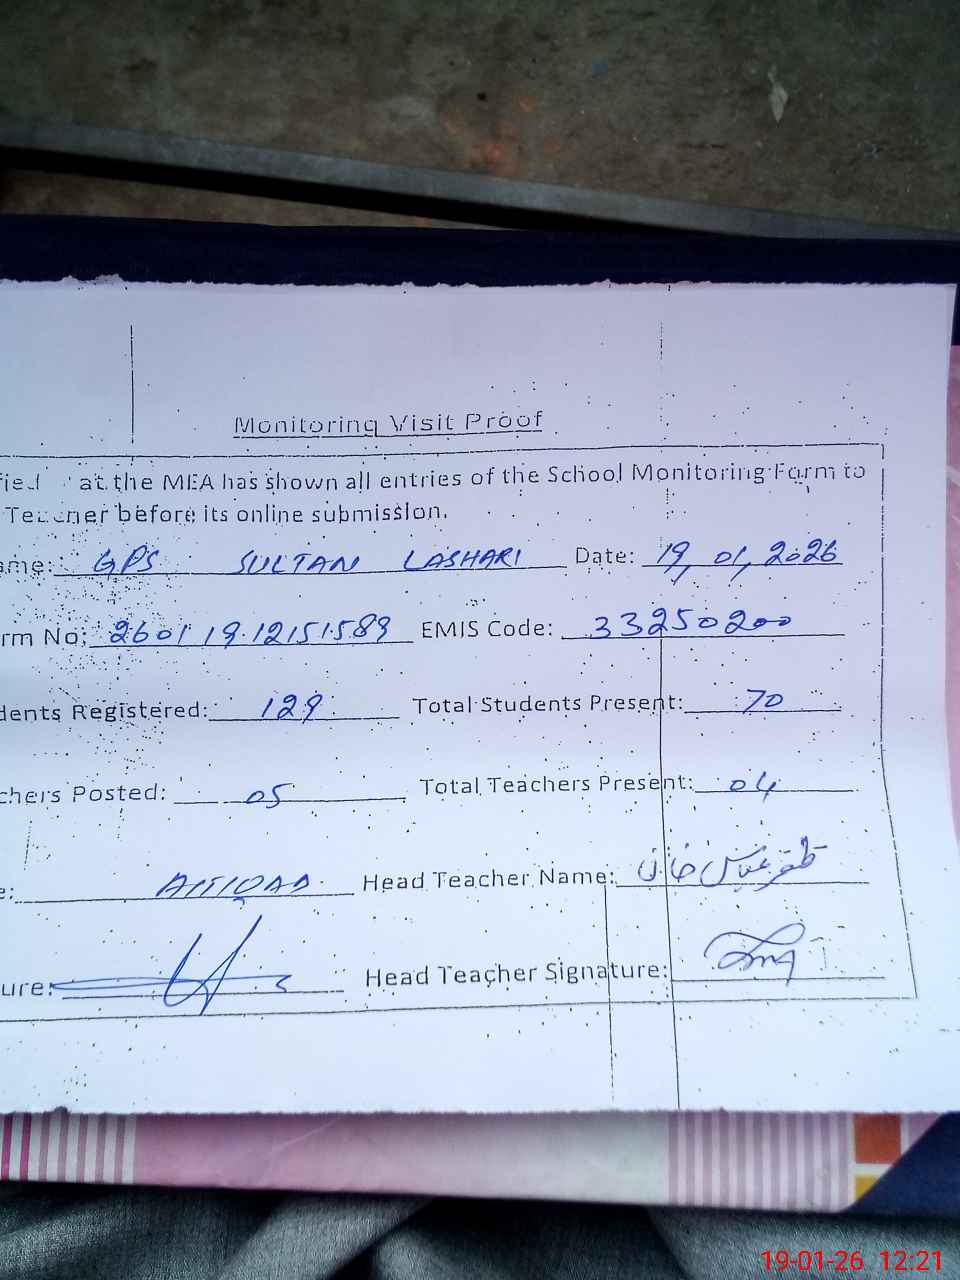 Monitoring Visit Proof
at the MEA has shown all entries of the School Monitoring Form to
Teacher before its online submission.
ame: GPS SULTAN LASHARI Date: 19, 01, 2026
rm No: 2601 19.12151589 EMIS Code: 33250200
dents Registered: 129 Total Students Present: 70
chers Posted: 05 Total Teachers Present: 04
e: AITIQAD Head Teacher Name: ظفر عباس خان
ure: Head Teacher Signature:
19-01-26 12:21